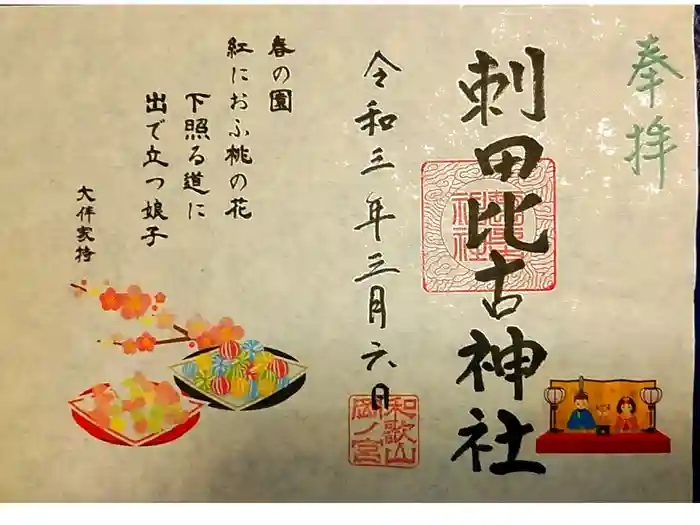 奉拝
刺田比古神社
令和三年三月六日
和歌山
岡ノ宮
春の園
紅におふ桃の花
下照る道に
出で立つ娘子
大伴家持